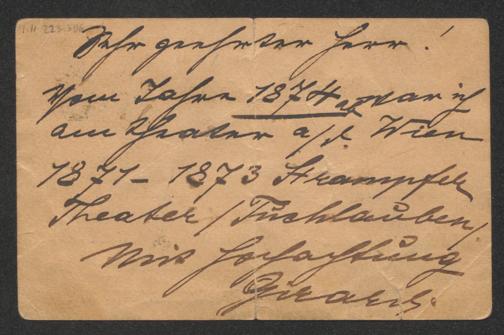 Sehr geehrter Herr!
Vom Jahre 1874 an war ich
am Theater a/d. Wien
1871 – 1873 Strampfer
Theater /Tuchlauben/
Mit Hochachtung
Girardi